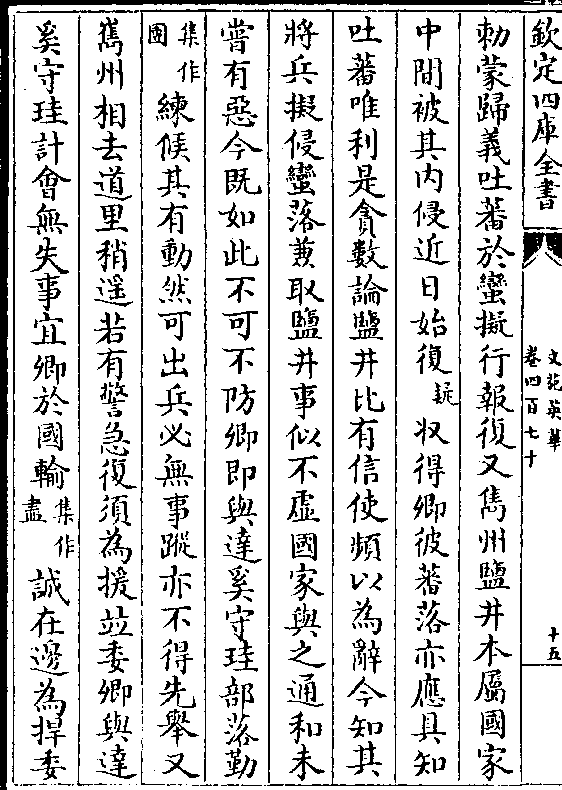 欽定四庫全書
文苑英華
卷四百七十
十五
勅蒙歸義吐蕃於蠻擬行報復又雋州鹽井本屬國家
中間被其内侵近日始復疑収得卿彼蕃落亦應具知
吐蕃唯利是貪數論鹽井比有信使頻以為辭今知其
將兵擬侵蠻落兼取鹽井事似不虛國家與之通和未
嘗有惡今既如此不可不防卿即與達奚守珪部落勤
集作國練候其有動然可出兵必無事蹤亦不得先舉又
嶲州相去道里稍遥若有警急復須為援並委卿與達
奚守珪計會無失事宜卿於國輸集作盡誠在邊為捍委